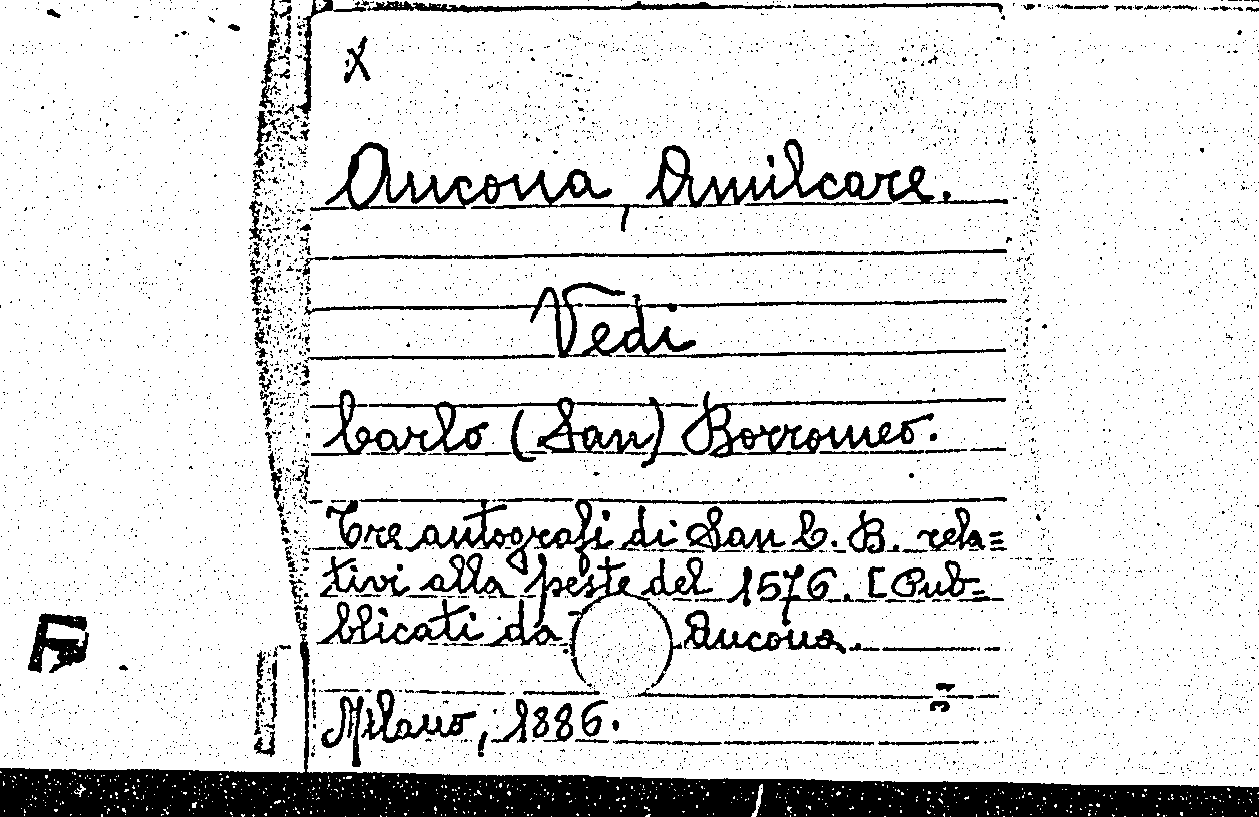 X
Ancona, Amilcare.
Vedi
Carlo (San) Borromeo.
Tre autografi di San C. B. rela=
tivi alla peste del 1576. [Pub=
blicati da Ancona.
Milano, 1886.